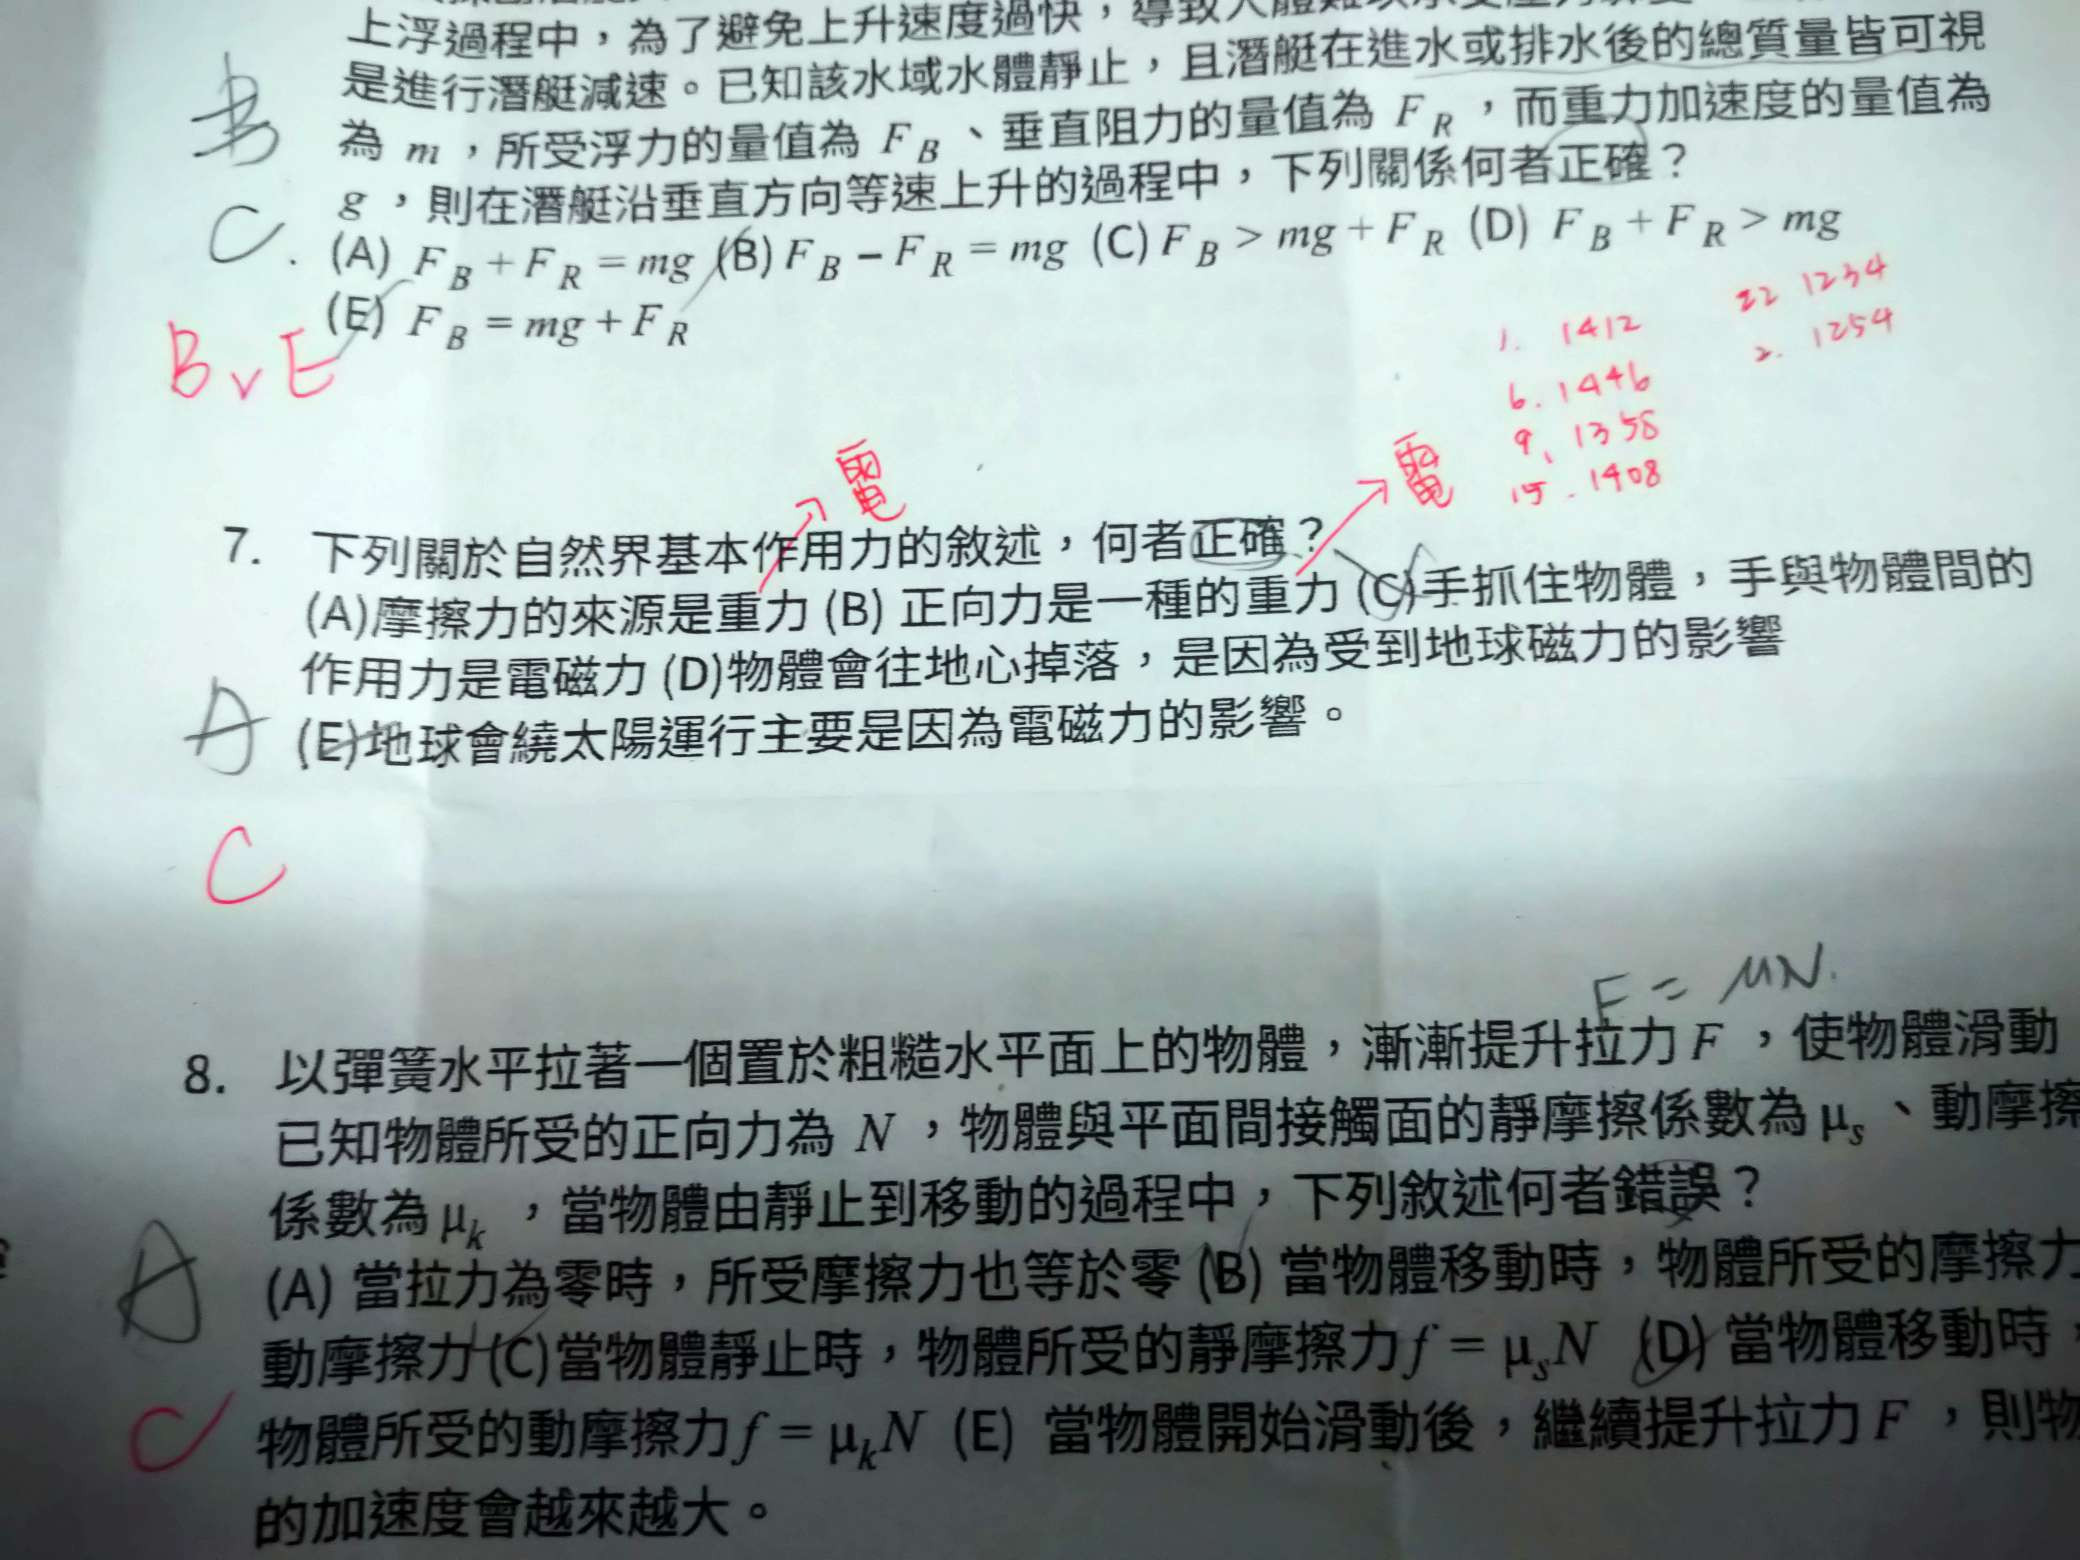 上浮過程中，為了避免上升速度過快，導致人體難以承受壓力
是進行潛艇減速。已知該水域水體靜止，且潛艇在進水或排水後的總質量皆可視
為 m，所受浮力的量值為 F_B、垂直阻力的量值為 F_R，而重力加速度的量值為
g，則在潛艇沿垂直方向等速上升的過程中，下列關係何者正確？
C. (A) F_B + F_R = mg (B) F_B − F_R = mg (C) F_B > mg + F_R (D) F_B + F_R > mg
(E) F_B = mg + F_R
B v E
1. 1412
6. 1446
9. 1358
15. 1408
22 1234
2. 1254
電
電
7. 下列關於自然界基本作用力的敘述，何者正確？
(A)摩擦力的來源是重力 (B) 正向力是一種的重力 (C)手抓住物體，手與物體間的
作用力是電磁力 (D)物體會往地心掉落，是因為受到地球磁力的影響
A (E)地球會繞太陽運行主要是因為電磁力的影響。
C
F = μN.
8. 以彈簧水平拉著一個置於粗糙水平面上的物體，漸漸提升拉力 F，使物體滑動
已知物體所受的正向力為 N，物體與平面間接觸面的靜摩擦係數為 μ_s、動摩擦
係數為 μ_k，當物體由靜止到移動的過程中，下列敘述何者錯誤？
A (A) 當拉力為零時，所受摩擦力也等於零 (B) 當物體移動時，物體所受的摩擦力
動摩擦力 (C)當物體靜止時，物體所受的靜摩擦力 f = μ_sN (D) 當物體移動時，
C 物體所受的動摩擦力 f = μ_kN (E) 當物體開始滑動後，繼續提升拉力 F，則物
的加速度會越來越大。